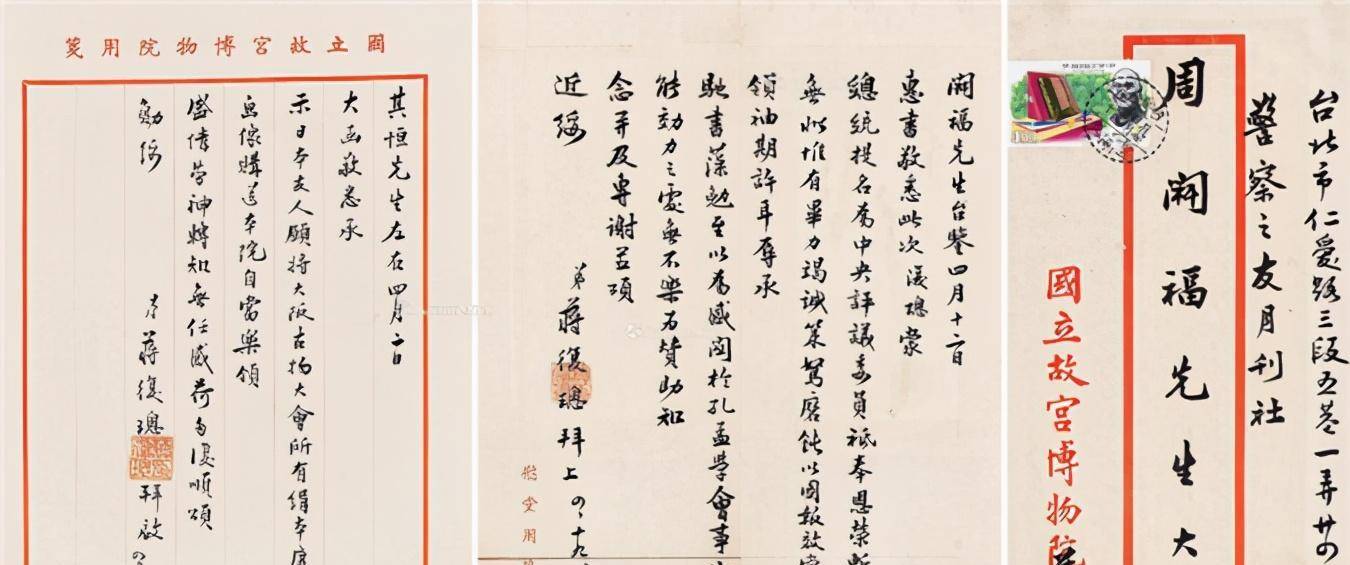 國立故宮博物院用箋
其恒先生左右四月二日
大函敬悉承
示日本友人願將大阪古物大會所有絹本唐
畫像購送本院自當樂領
盛情勞神轉知無任感荷匆復順頌
勛綏
蔣復璁拜啟
開福先生台鑒四月十二日
惠書敬悉此次復璁蒙
總統提名為中央評議委員祗奉恩榮慚
無似惟有畢力竭誠策駑磨鈍以圖報效
領袖期許耳辱承
馳書藻勉至以為感關於孔孟學會事
能効力之處無不樂為贊助知
念并及專謝并頌
近綏
弟蔣復璁拜上四、十九
用
台北市仁愛路三段五巷一弄廿四
警察之友月刊社
周開福先生大
國立故宮博物院